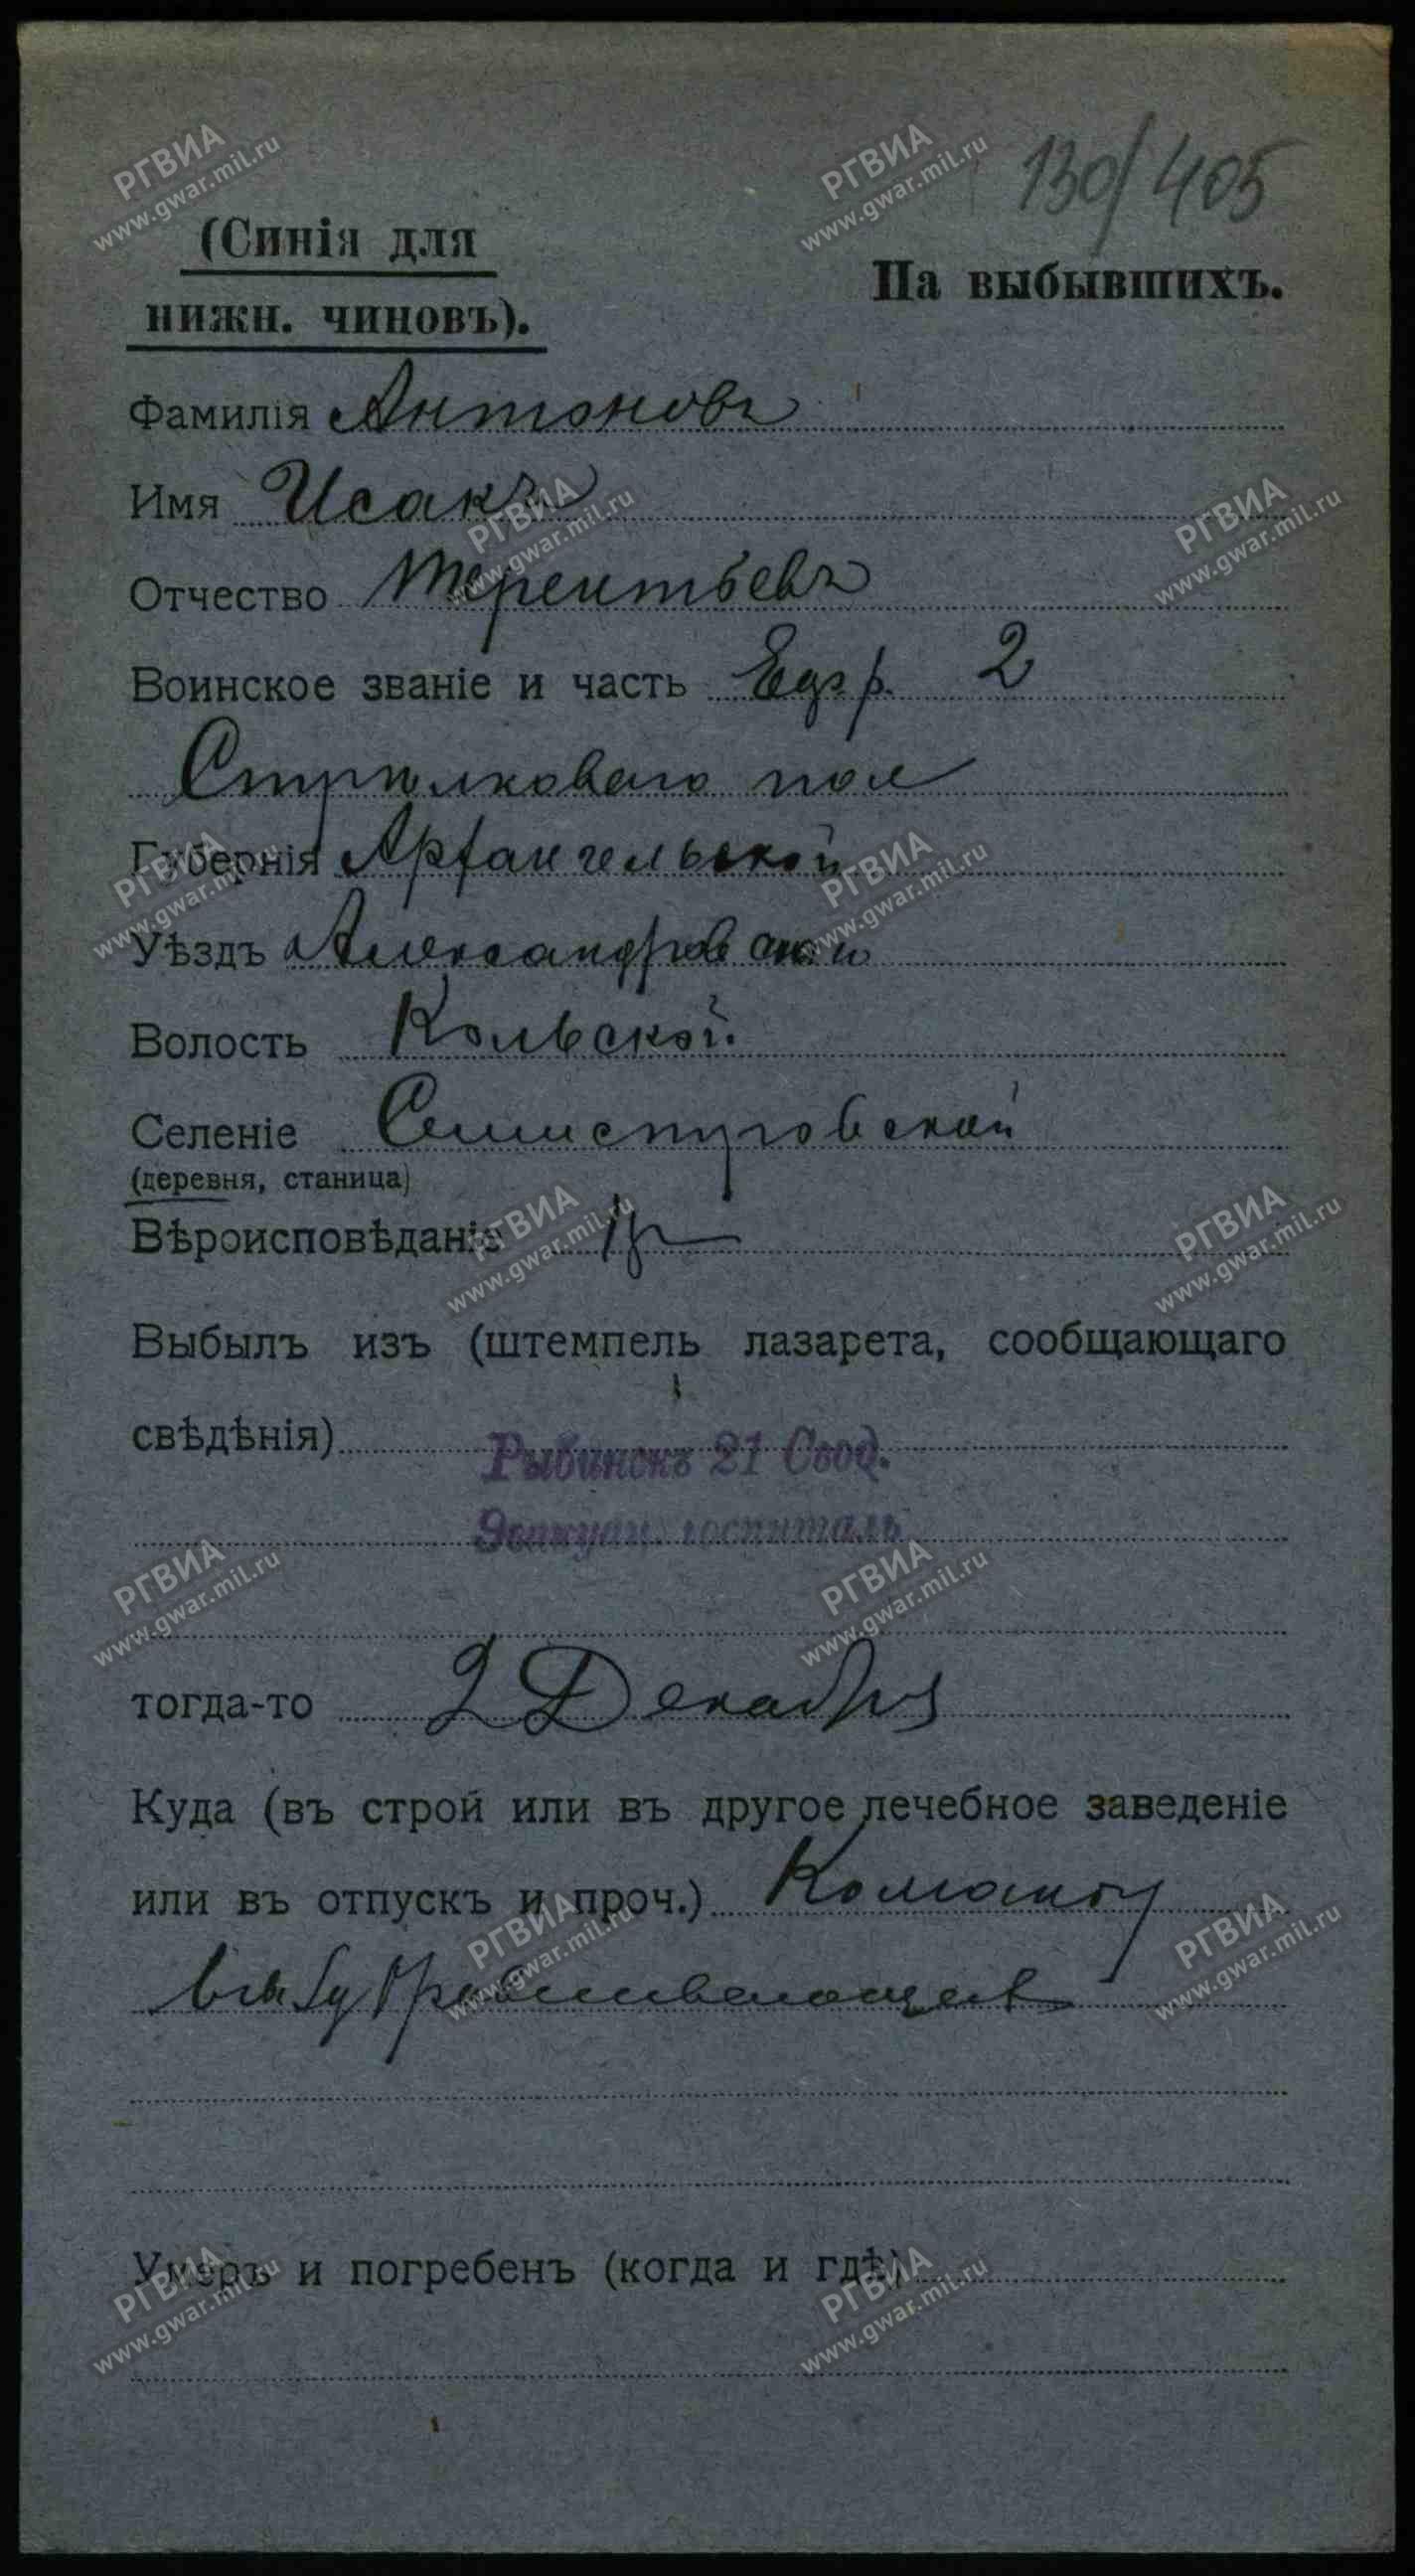 130/405
(Синія для
нижн. чиновъ).
На выбывшихъ.
Фамилія Антоновъ
Имя Исакъ
Отчество Терентьевъ
Воинское званіе и часть 2
Стрѣлковаго пол
Губернія Архангельской
Уѣздъ Александровской
Волость Кольской
Селеніе
(деревня, станица)
Вѣроисповѣданіе
Выбылъ изъ (штемпель лазарета, сообщающаго
свѣдѣнія)
Рыбинскъ 21 Свод.
Эвакуац. госпиталь
тогда-то 2 Декабря
Куда (въ строй или въ другое лечебное заведеніе
или въ отпускъ и проч.) Команду
выздоравливающихъ
Умеръ и погребенъ (когда и гдѣ)
РГВИА
www.gwar.mil.ru